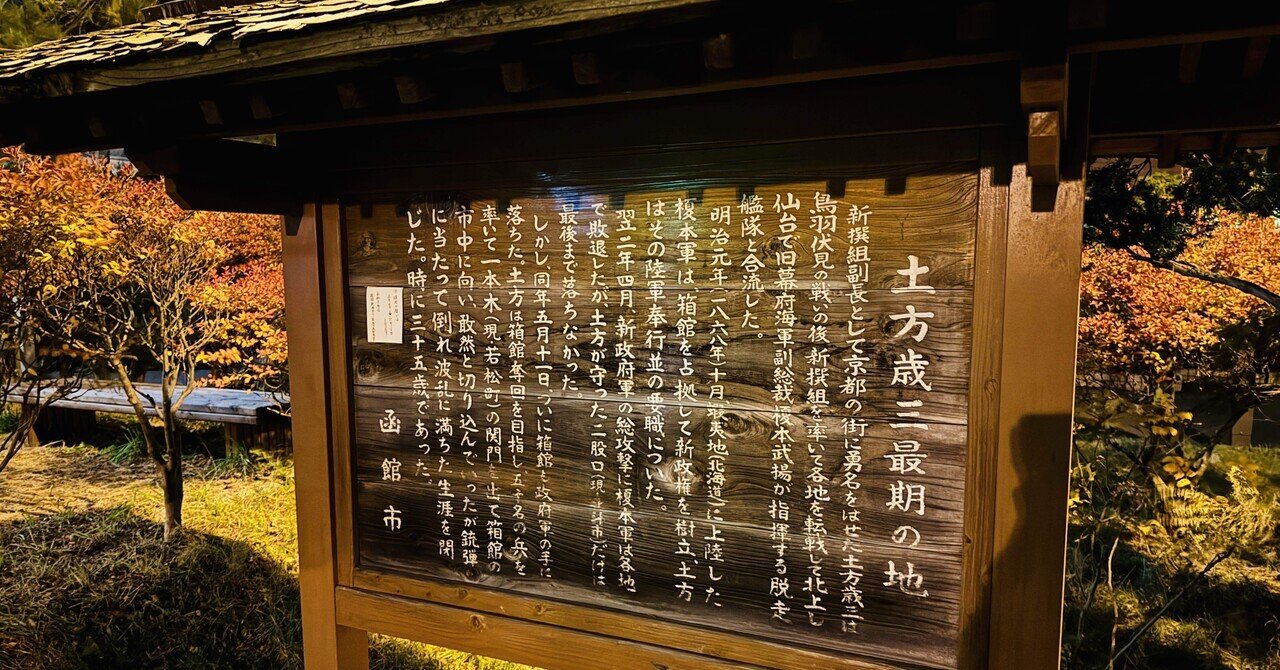 土方歳三最期の地
新撰組副長として京都の街に勇名をはせた土方歳三は
鳥羽伏見の戦いの後新撰組を率いて各地を転戦して北上し
仙台で旧幕府海軍副総裁榎本武揚が指揮する脱走
艦隊と合流した。
明治元年(一八六八年)十月蝦夷地(北海道)に上陸した
榎本軍は、箱館を占拠して新政権を樹立、土方
はその陸軍奉行並の要職についた。
翌二年四月、新政府軍の総攻撃に榎本軍は各地
で敗退したが、土方が守った二股口(現 市)だけは
最後まで落ちなかった。
しかし、同年五月十一日、ついに箱館も政府軍の手に
落ちた。土方は箱館奪回を目指し五十名の兵を
率いて一本木(現若松町)の関門を出て箱館の
市中に向い、敢然と切り込んで ったが銃弾
に当たって倒れ波乱に満ちた生涯を閉
じた。時に三十五歳であった。
函館市